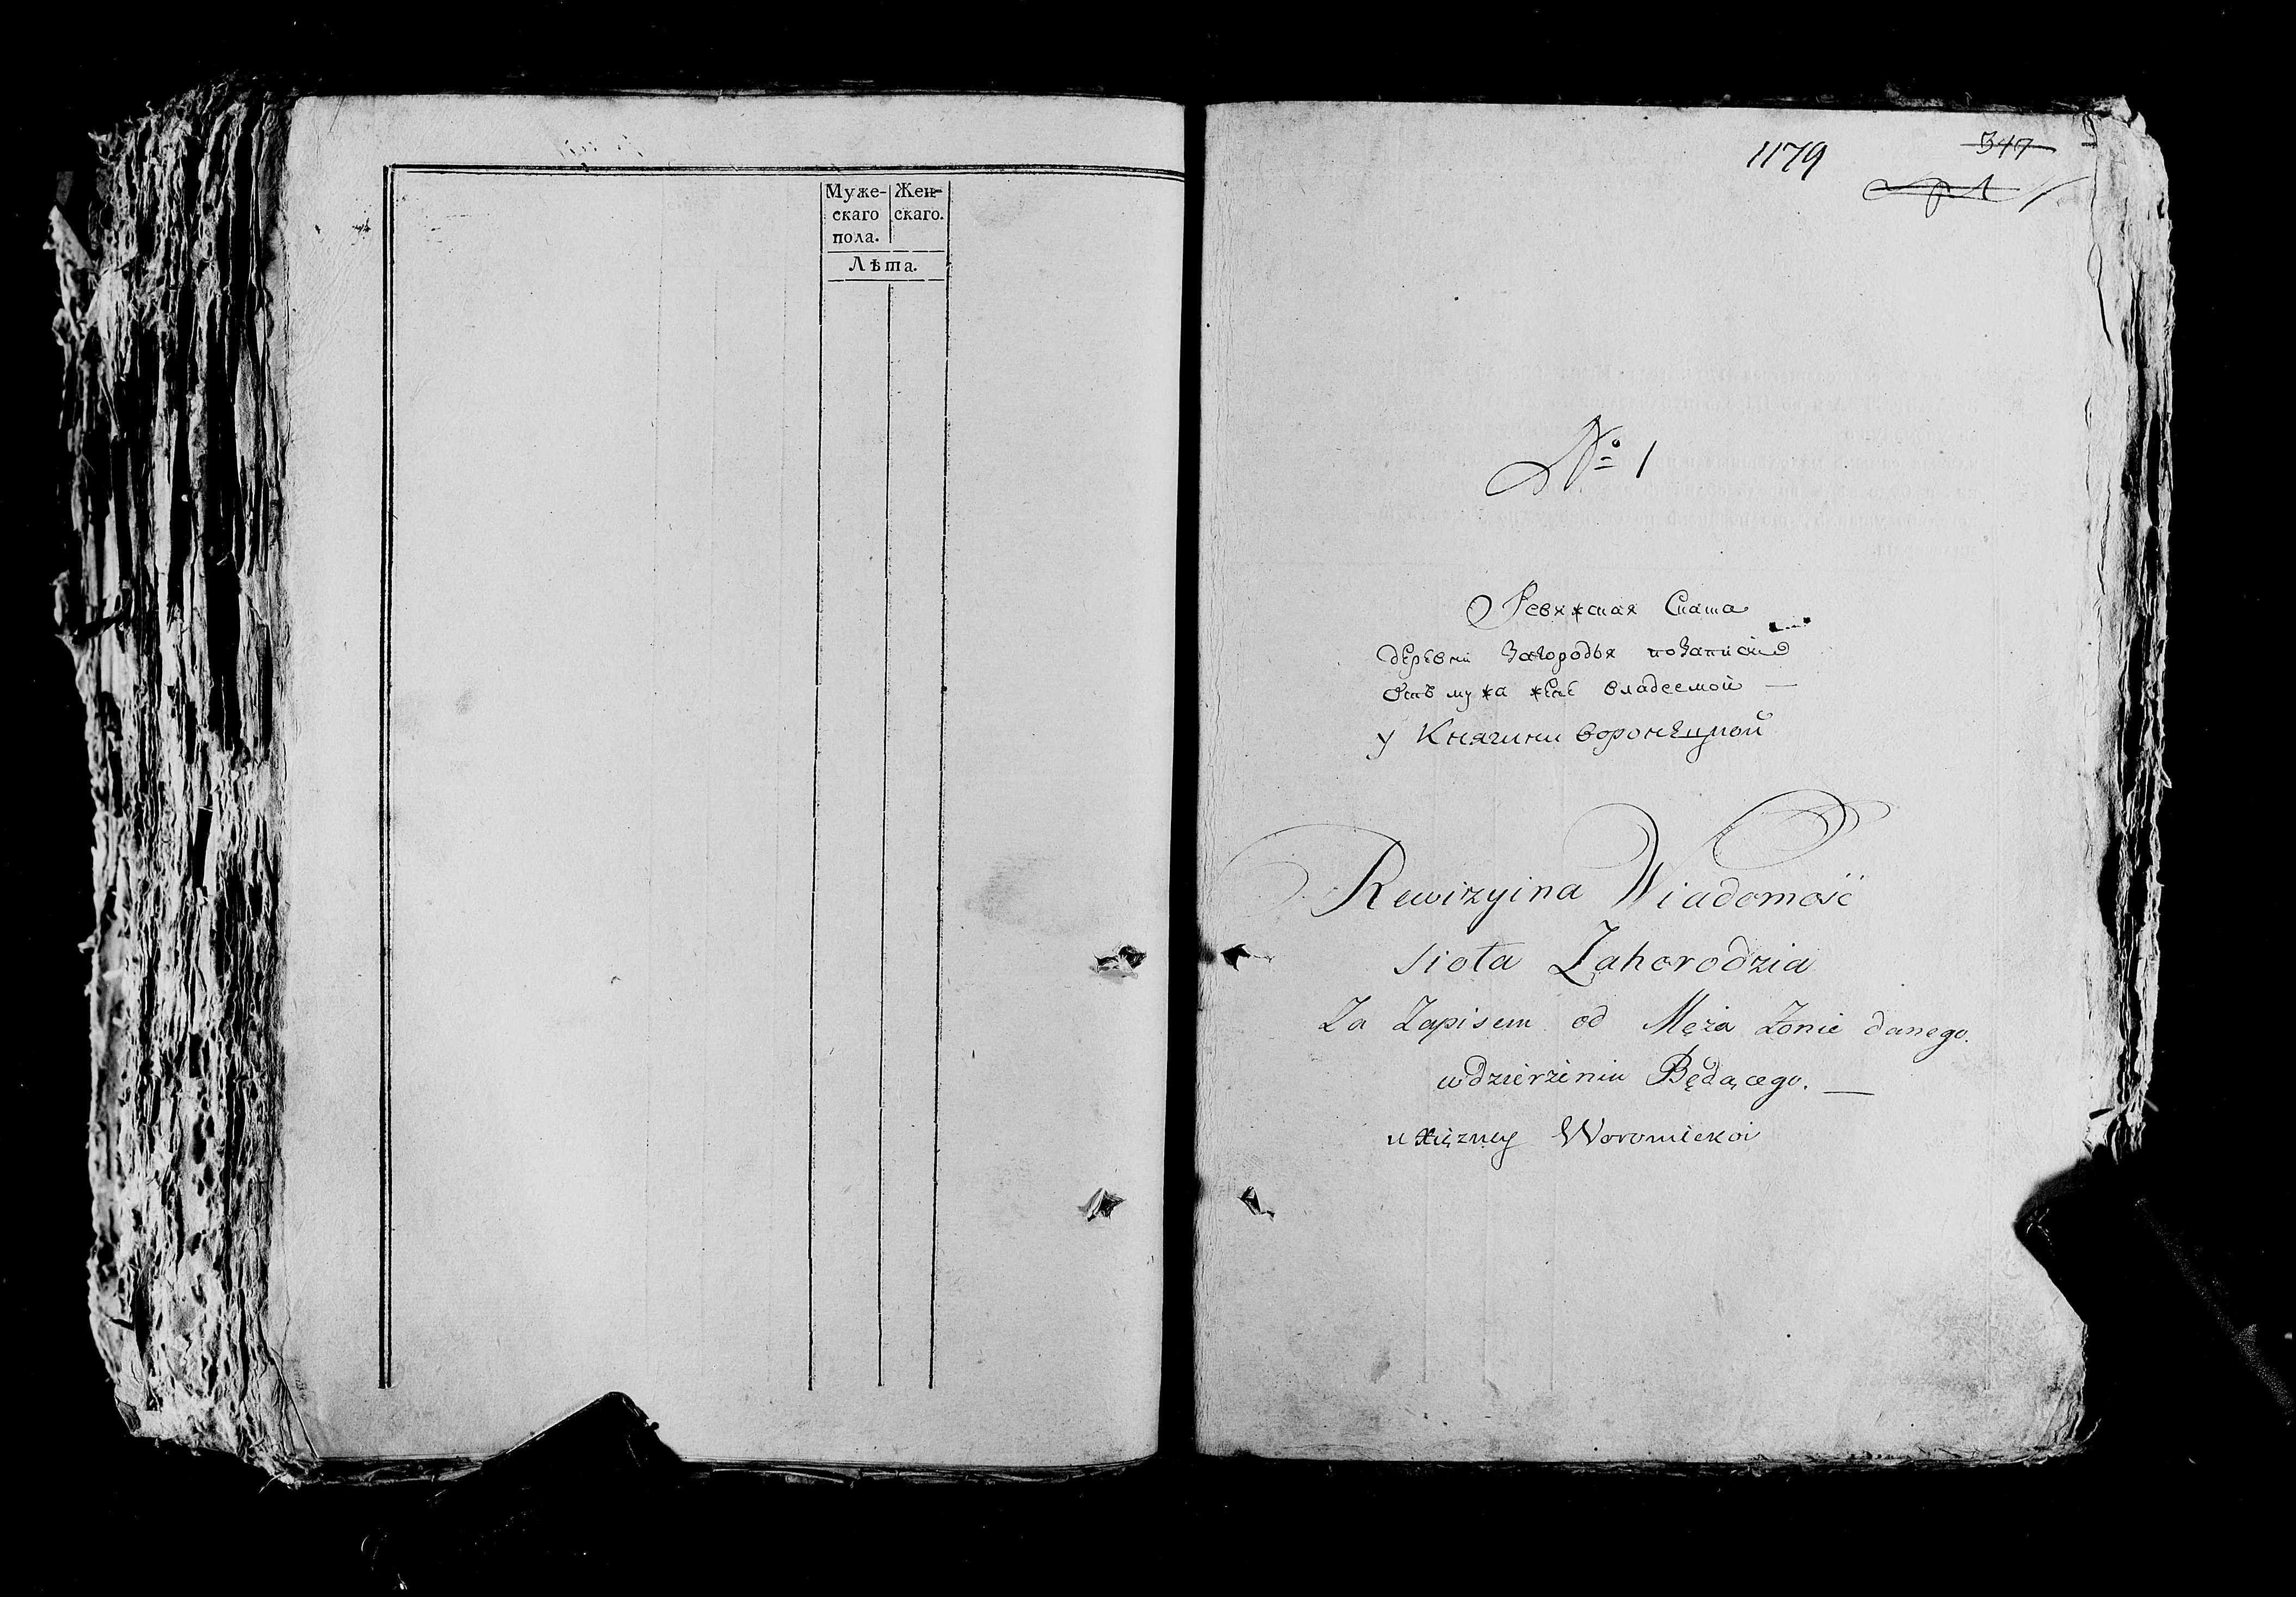 Муже- Жен-
скаго скаго.
пола.
Лѣта.
1179 347
№ 1
Ревижская Скаска
деревни Загородья по Записи
отъ мужа жене владеемой —
у Княгини воронецкой
Rewizyina Wiadomość
sioła Zahorodzia
Za Zapisem od Męża Żonie danego.
w dzierżeniu Będącego. —
u Xiężney Woronieckoi